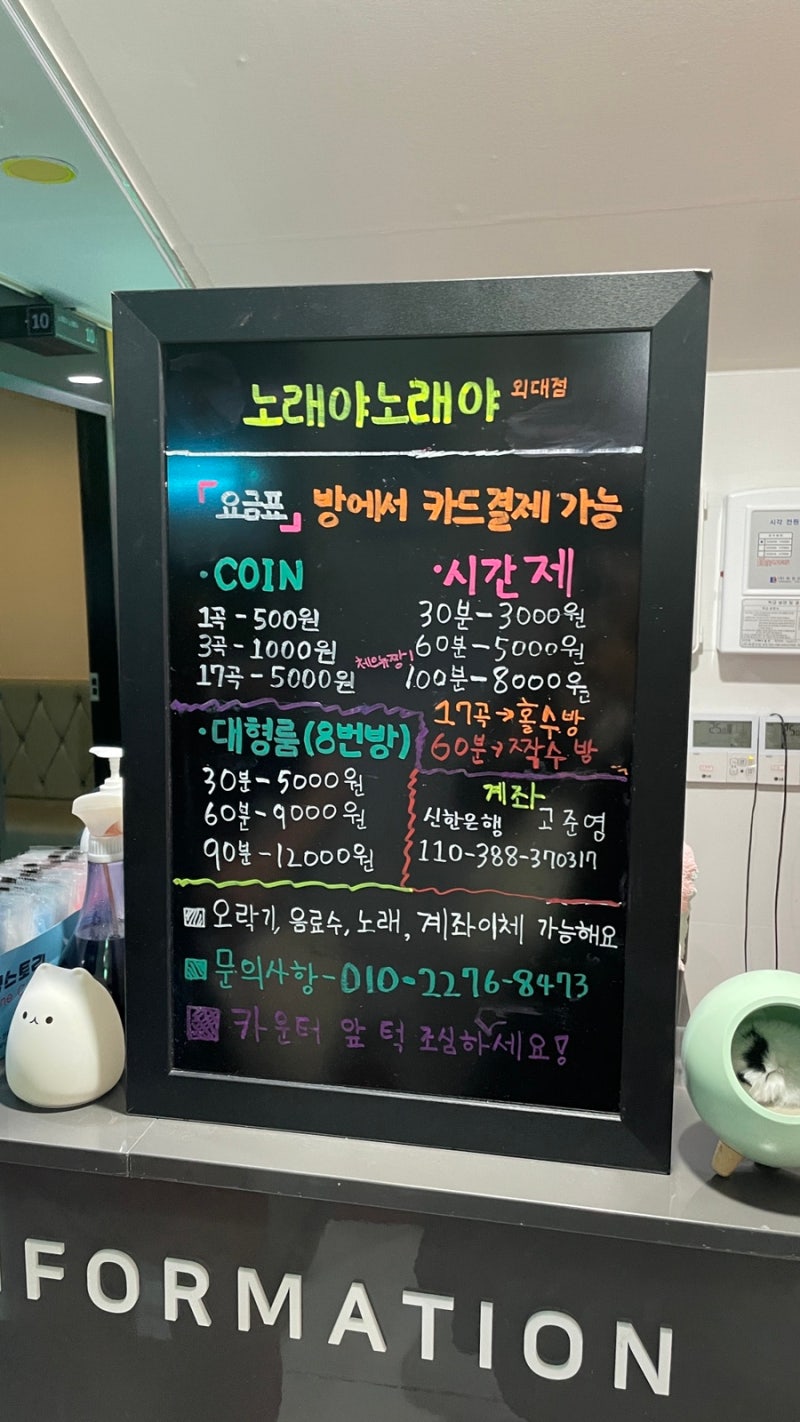 노래야노래야 외대점
「요금표」 방에서 카드결제 가능
·COIN
1곡-500원
3곡-1000원
17곡-5000원
·시간제
30분-3000원
60분-5000원
100분-8000원
17곡→홀수방
60분→짝수 방
·대형룸(8번방)
30분-5000원
60분-9000원
90분-12000원
계좌
신한은행 고준영
110-388-370317
오락기, 음료수, 노래, 계좌이체 가능해요
문의사항-010-2276-8473
카운터 앞 턱 조심하세요!
10
10
FORMATION